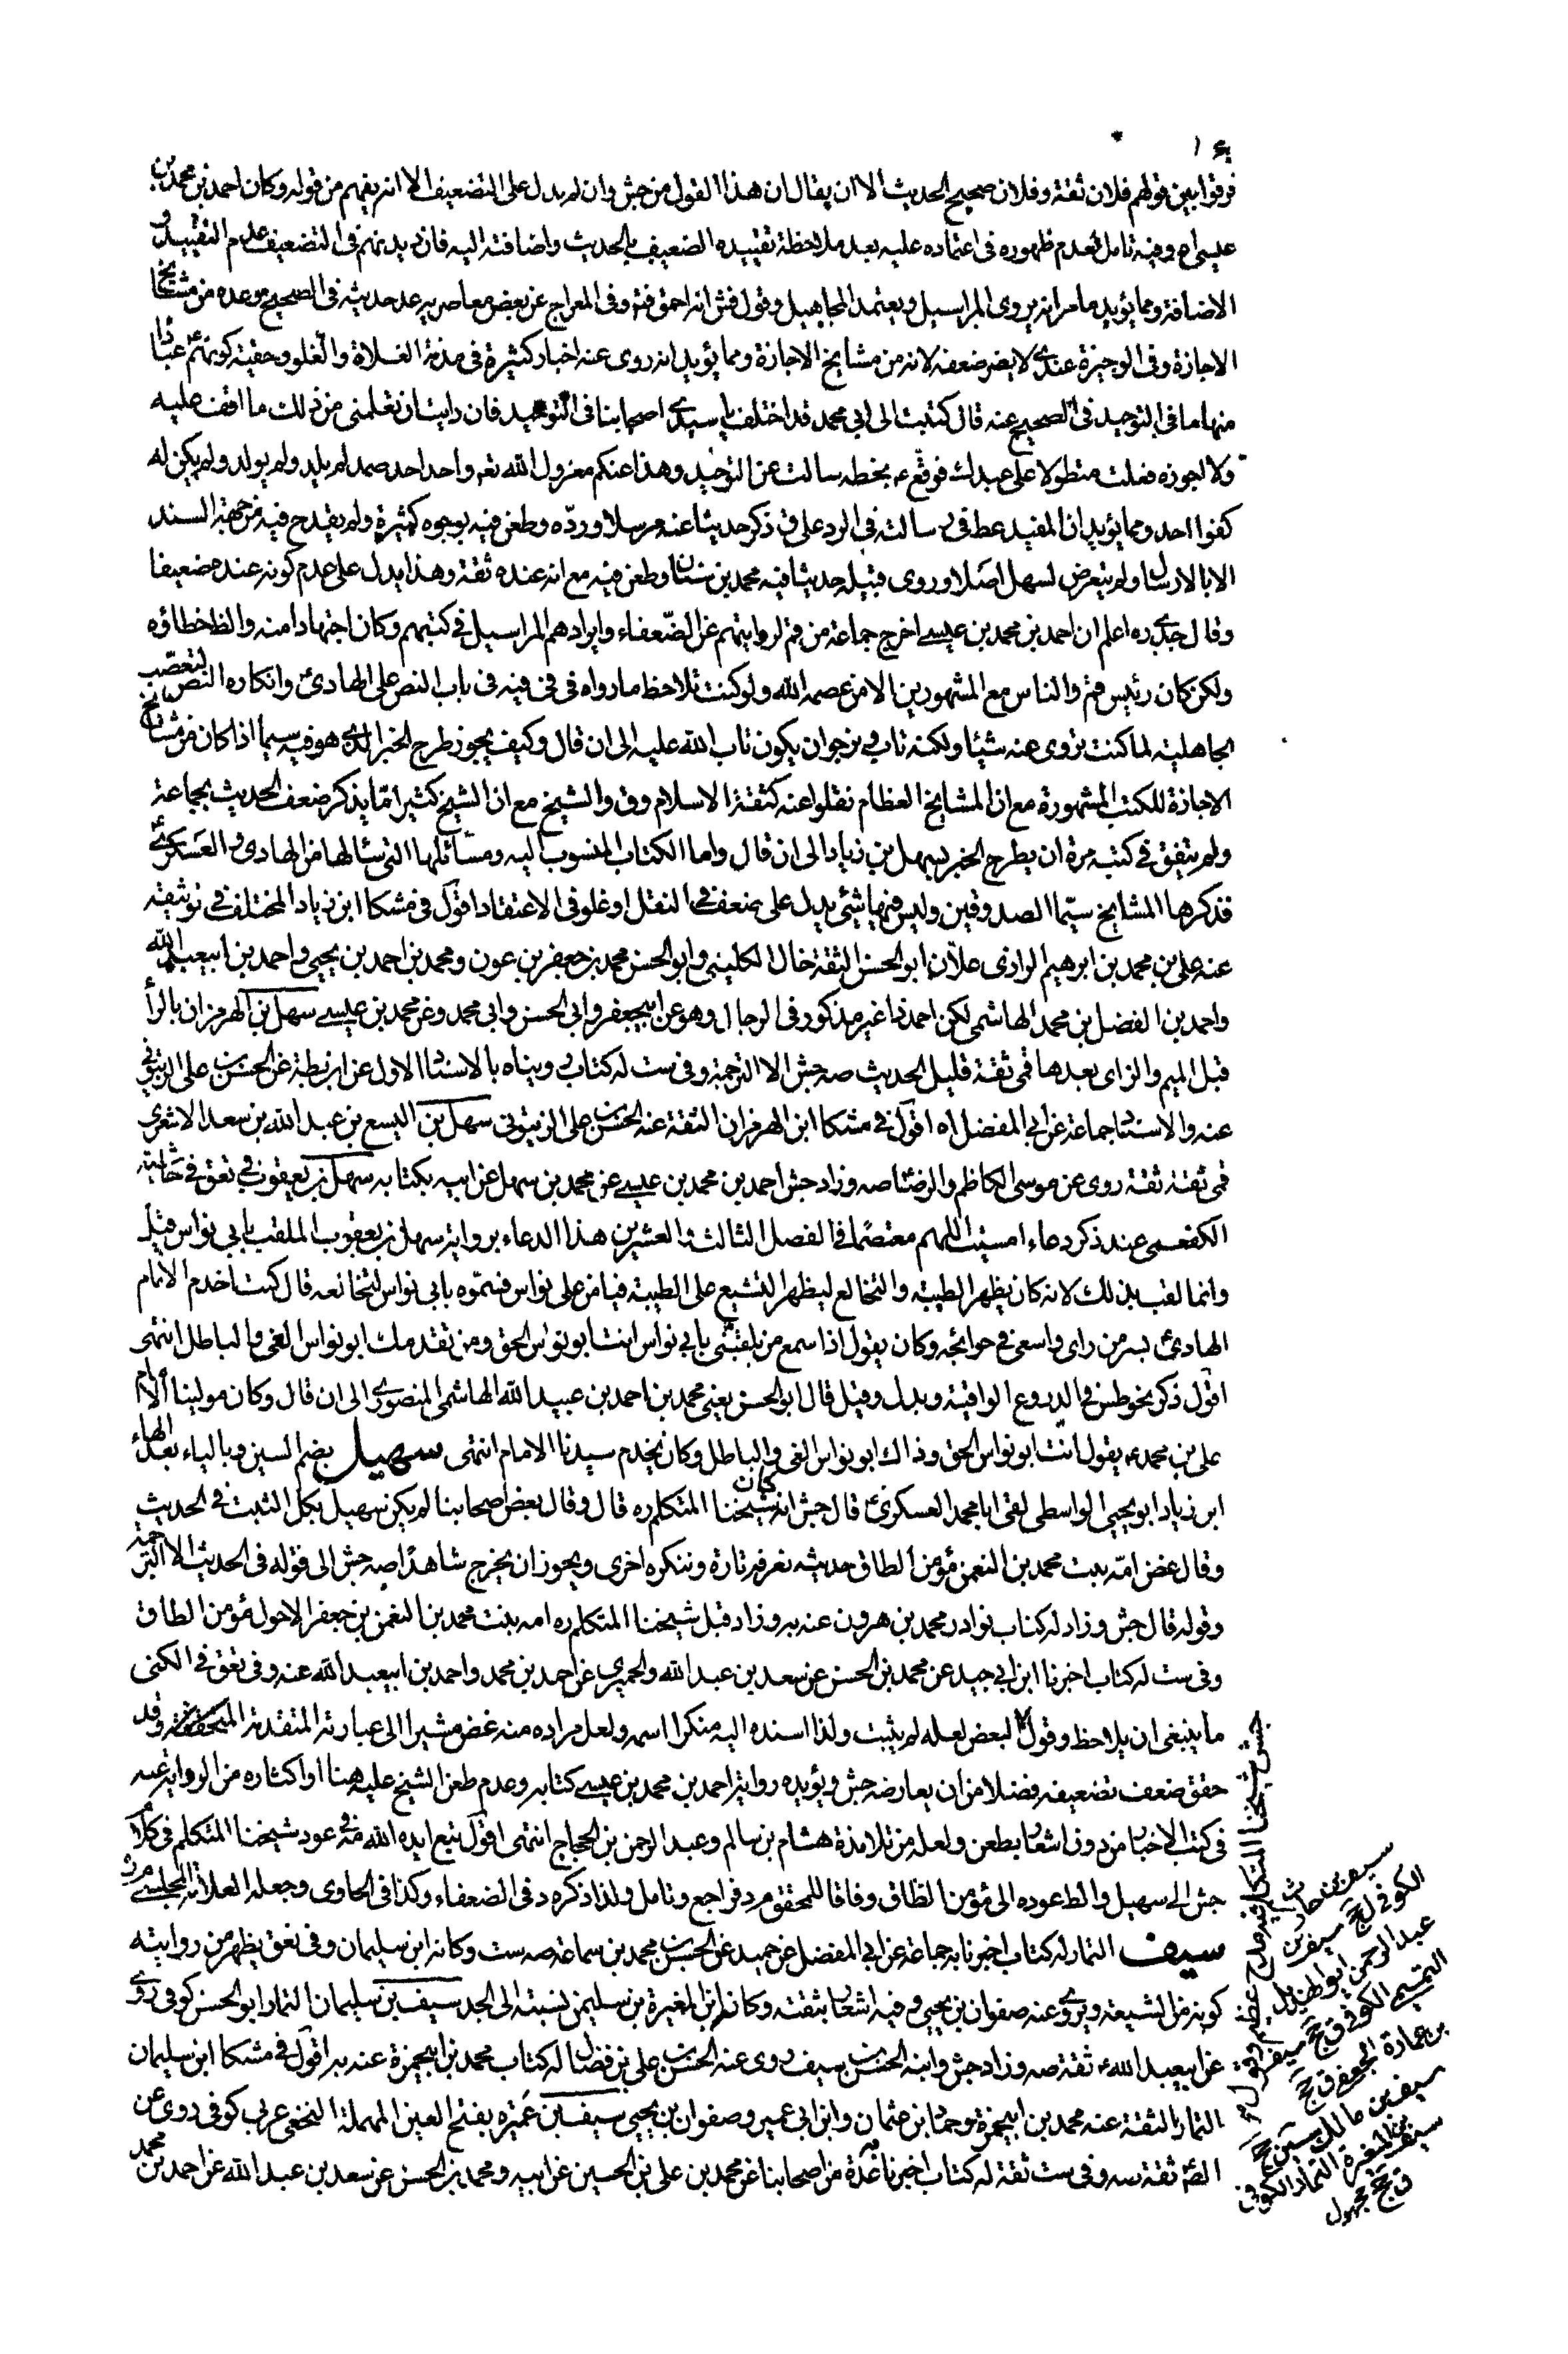 فرقوا بين قولهم فلان ثقة وفلان صحيح الحديث الا ان يقال ان هذا القول من جش وان لم يدل على التضعيف الا انه يفهم من قوله وكان احمد بن محمد بن
عيسى اه وفيه تامل لعدم ظهوره في اعتماده عليه بعد ملاحظة تقييده الضعيف بالحديث واضافته اليه فان ديدنهم في التضعيف عدم التقييد و
الاضافة ومما يؤيد ما مر انه يروى المراسيل ويعتمد المجاهيل وقول فش انه احمق فتم وفي المعراج عن بعض معاصريه عد حديثه في الصحيح وعده من مشايخ
الاجازة وفي الوجيزة عندي لا يضر ضعفه لانه من مشايخ الاجازة ومما يؤيد انه روى عنه اخبار كثيرة في مذمة الغلاة والغلو وحقية كونهم عبادا
منها ما في التوحيد في الصحيح عنه قال كتبت الى ابي محمد قد اختلف يا سيدي اصحابنا في التوحيد فان رايت ان تعلمني من ذلك ما اقف عليه
ولا اجوزه فعلت متطولا على عبدك فوقع ع بخطه سالت عن التوحيد وهذا عنكم معزول الله تعه واحد احد صمد لم يلد ولم يولد ولم يكن له
كفوا احد ومما يؤيد ان المفيد عط في رسالته في الرد على ق ذكر حديثا عنه مرسلا ورده وطعن فيه بوجوه كثيرة ولم يقدح فيه من جهة السند
الا بالارسال ولم يتعرض لسهل اصلا وروى قبيله حديثا فيه محمد بن سنان وطعن فيه مع انه عنده ثقة وهذا يدل على عدم كونه عنده ضعيفا
وقال جدي ره اعلم ان احمد بن محمد بن عيسى اخرج جماعة من قم لروايتهم عن الضعفاء وايرادهم المراسيل في كتبهم وكان اجتهادا منه والظ خطاؤه
ولكن كان رئيس قم والناس مع المشهورين الا من عصمه الله ولو كنت تلاحظ ما رواه في في فيه في باب النص على الهادي ع وانكاره النص لتعصب
الجاهلية لما كنت تروى عنه شيئا ولكنه تاب ونرجو ان يكون تاب الله عليه الى ان قال وكيف يجوز طرح الخبر الذي هو فيه سيما اذا كان من مشايخ
الاجازة للكتب المشهورة مع ان المشايخ العظام نقلوا عنه كثقة الاسلام وق والشيخ مع ان الشيخ كثيرا ما يذكر ضعف الحديث بجماعة
ولم يتفق في كتبه مرة ان يطرح الخبر بسهل بن زياد الى ان قال واما الكتاب المنسوب اليه ومسائلها التي سئالها من الهادي والعسكري ع
فذكرها المشايخ سيما الصدوقين وليس فيها شئ يدل على ضعف في النقل او غلو في الاعتقاد اقول في مشكا ابن زياد المختلف في توثيقه
عنه علي بن محمد بن ابرهيم الرازى علان ابو الحسن الثقة خال الكليني وابو الحسن محمد بن جعفر بن عون ومحمد بن احمد بن يحيى واحمد بن ابيعبد الله
واحمد بن الفضل بن محمد الهاشمي لكن احمد ذا غير مذكور في الرجال وهو عن ابيجعفر وابي الحسن وابي محمد وعن محمد بن عيسى سهل بن الهرمزان بالرا
قبل الميم والزاى بعدها قمى ثقة قليل الحديث صه جش الا الترجمة وفي ست له كتاب رويناه بالاسناد الاول عن ابن بطة عن الحسن بن علي الزيتوني
عنه والاسناد جماعة عن ابي المفضل اه اقول في مشكا ابن الهرمزان الثقة عنه الحسن بن علي الزيتوني سهل بن اليسع بن عبد الله بن سعد الاشعري
قمى ثقة ثقة روى عن موسى الكاظم والرضا صه وزاد جش احمد بن محمد بن عيسى عن محمد بن سهل عن ابيه بكتابه سهل بن يعقوب في تعق في حاشية
الكفعمى عند ذكر دعاء امسيت اللهم معتصما في الفصل الثالث والعشرين هذا الدعاء برواية سهل بن يعقوب الملقب بابي نواس قيل
وانما لقب بذلك لانه كان يظهر الطيبة والتخالع ليظهر التشيع على الطيبة فيامن على نواس فسموه بابي نواس لتخالعه قال كنت اخدم الامام
الهادي ع بسر من راى واسعى في حوائجه وكان يقول اذا سمع من يلقبني بابي نواس انت ابو نواس الحق ومن تقدمك ابو نواس الغى والباطل انتهى
اقول ذكر بخوطس في الدروع الواقية وبدل وقيل قال ابو الحسن يعني محمد بن احمد بن عبيد الله الهاشمي المنصوري الى ان قال وكان مولينا الامام
علي بن محمد ع يقول انت ابو نواس الحق وذاك ابو نواس الغى والباطل وكان يخدم سيدنا الامام انتهى سهيل بضم السين وبالياء بعد الهاء
ابن زياد ابو يحيى الواسطى لقى ابا محمد العسكري ع قال جش انه كان شيخنا المتكلم ره قال وقال بعض اصحابنا لم يكن سهيل بكل الثبت في الحديث
وقال غض امه بنت محمد بن النعمن مؤمن الطاق حديثه نعرفه تارة وننكره اخرى ويجوز ان يخرج شاهدا صه جش الى قوله في الحديث الا الترجمة
وقوله قال جش وزاد له كتاب نوادر محمد بن هرون عنه به وزاد قبل شيخنا المتكلم ره امه بنت محمد بن النعمن بن جعفر الاحول مؤمن الطاق
وفي ست له كتاب اخبرنا ابن ابي جيد عن محمد بن الحسن عن سعد بن عبد الله والحميري عن احمد بن محمد واحمد بن ابيعبد الله عنه وفي تعق في الكنى
ما ينبغى ان يلاحظ وقول البعض لعله لم يثبت ولذا اسنده اليه منكرا اسمه ولعل مراده منه غض مشيرا الى عبارته المتقدمة وقد
حقق ضعف تضعيفه فضلا من ان يعارضه جش ويؤيده رواية احمد بن محمد بن عيسى كتابه وعدم طعن الشيخ عليه هنا او اكثاره من الرواية عنه
في كتب الاخبار من دون اشعار بطعن ولعله من تلامذة هشام بن سالم وعبد الرحمن بن الحجاج انتهى اقول تبع ايده الله في عود شيخنا المتكلم في كلام
جش الى سهيل والظ عوده الى مؤمن الطاق وفاقا للمحقق مر د فراجع وتامل ولذا ذكره د في الضعفاء وكذا في الحاوى وجعله العلامة المجلسي
سيف التمار له كتاب اخبرنا به جماعة عن ابي المفضل عن حميد عن الحسن بن محمد بن سماعة صه ست وكانه ابن سليمان وفي تعق يظهر من روايته
كونه من الشيعة ويروى عنه صفوان بن يحيى وفيه اشعار بثقته وكانه ابن المغيرة بن سليمن نسبته الى الجد سيف بن سليمان التمار ابو الحسن كوفي روى
عن ابيعبد الله ع ثقة صه وزاد جش وابنه الحسن بن سيف روى عنه الحسن بن علي بن فضال له كتاب محمد بن ابيحمزة عنه به اقول في مشكا ابن سليمان
التمار الثقة عنه محمد بن ابيحمزة وحماد بن عثمان وابن ابي عمير وصفوان بن يحيى سيف بن عميره بفتح العين المهملة النخعي عربي كوفي روى عن
الصه ثقة سه وفي ست ثقة له كتاب اخبرنا به عدة من اصحابنا عن محمد بن علي بن الحسين عن ابيه ومحمد بن الحسن عن سعد بن عبد الله عن احمد بن محمد
سيف بن حارث
الكوفي ق جخ سيف بن
عبد الرحمن ابو الهذيل
التميمي الكوفي ق جخ سيف
بن عمارة الجعفى ق جخ
سيف بن مالك سين جخ
سيف بن المغيرة التمار الكوفي
ق جخ مجهول